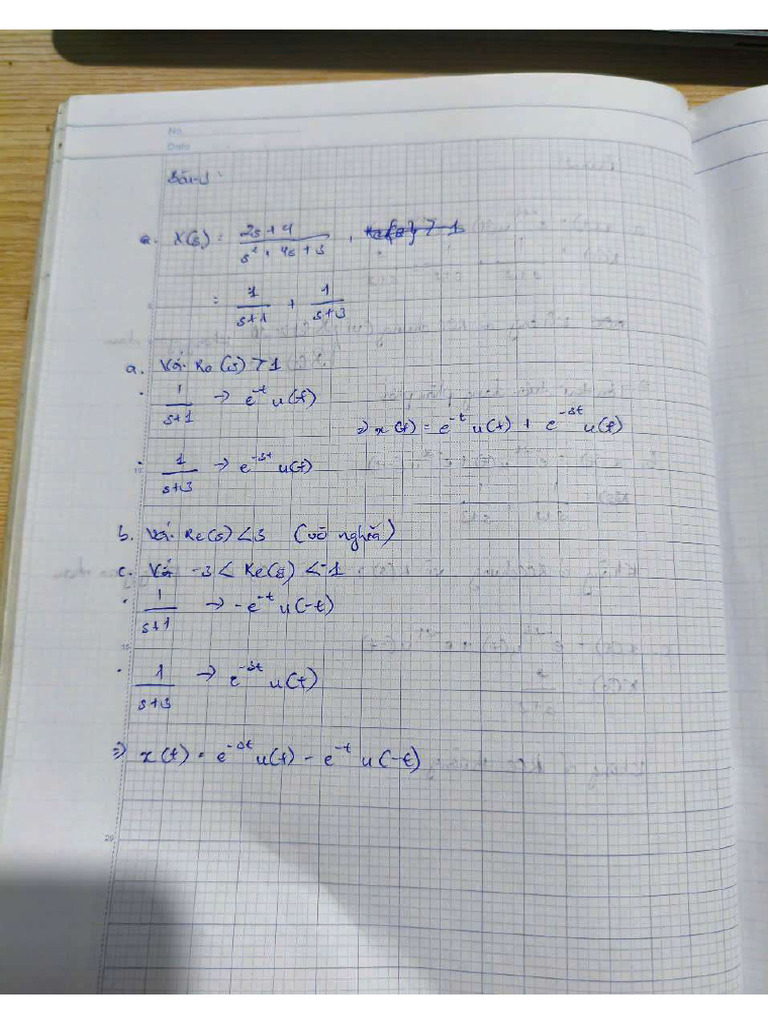 No.
Date
Bài 3:
a. X(s) = (2s + 4)/(s² + 4s + 3) ,
= 1/(s+1) + 1/(s+3)
a. Với Re(s) > 1
· 1/(s+1) → e^{-t} u(t)
⇒ x(t) = e^{-t} u(t) + e^{-3t} u(t)
· 1/(s+3) → e^{-3t} u(t)
b. Với Re(s) < 3 (vô nghĩa)
c. Với -3 < Re(s) < -1
· 1/(s+1) → -e^{-t} u(-t)
· 1/(s+3) → e^{-3t} u(t)
⇒ x(t) = e^{-3t} u(t) - e^{-t} u(-t)
20